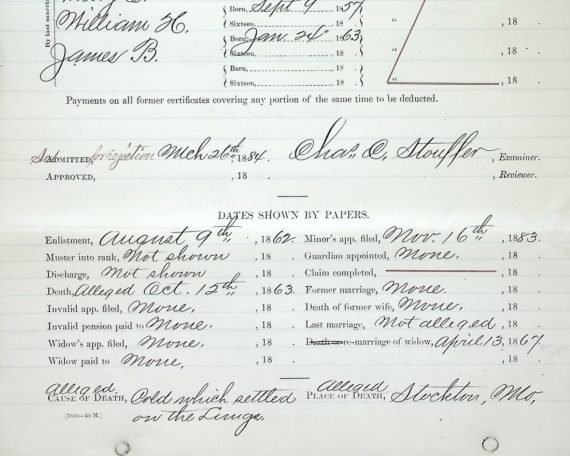 By last marriage
Born, Sept 9, 1857
William H. Sixteen, 18
Born, Jan. 24, 1863 " , 18
James B. Sixteen, 18
Born, 18
Sixteen, 18 " , 18
Payments on all former certificates covering any portion of the same time to be deducted.
ADMITTED, for rejection Mch 26th, 1884. Chas. O. Stouffer, Examiner.
APPROVED, , 18 . , Reviewer.
DATES SHOWN BY PAPERS.
Enlistment, August 9th, 1862. Minor's app. filed, Nov. 16th, 1883.
Muster into rank, Not shown, 18 . Guardian appointed, None. , 18 .
Discharge, Not shown, 18 . Claim completed, , 18 .
Death, Alleged Oct. 12th, 1863. Former marriage, None. , 18 .
Invalid app. filed, None. , 18 . Death of former wife, None. , 18 .
Invalid pension paid to None. , 18 . Last marriage, Not alleged, 18 .
Widow's app. filed, None. , 18 . Death or re-marriage of widow, April 13, 1867.
Widow paid to None, , 18
alleged alleged
CAUSE OF DEATH, Cold which settled PLACE OF DEATH, Stockton, Mo,
on the Lungs.